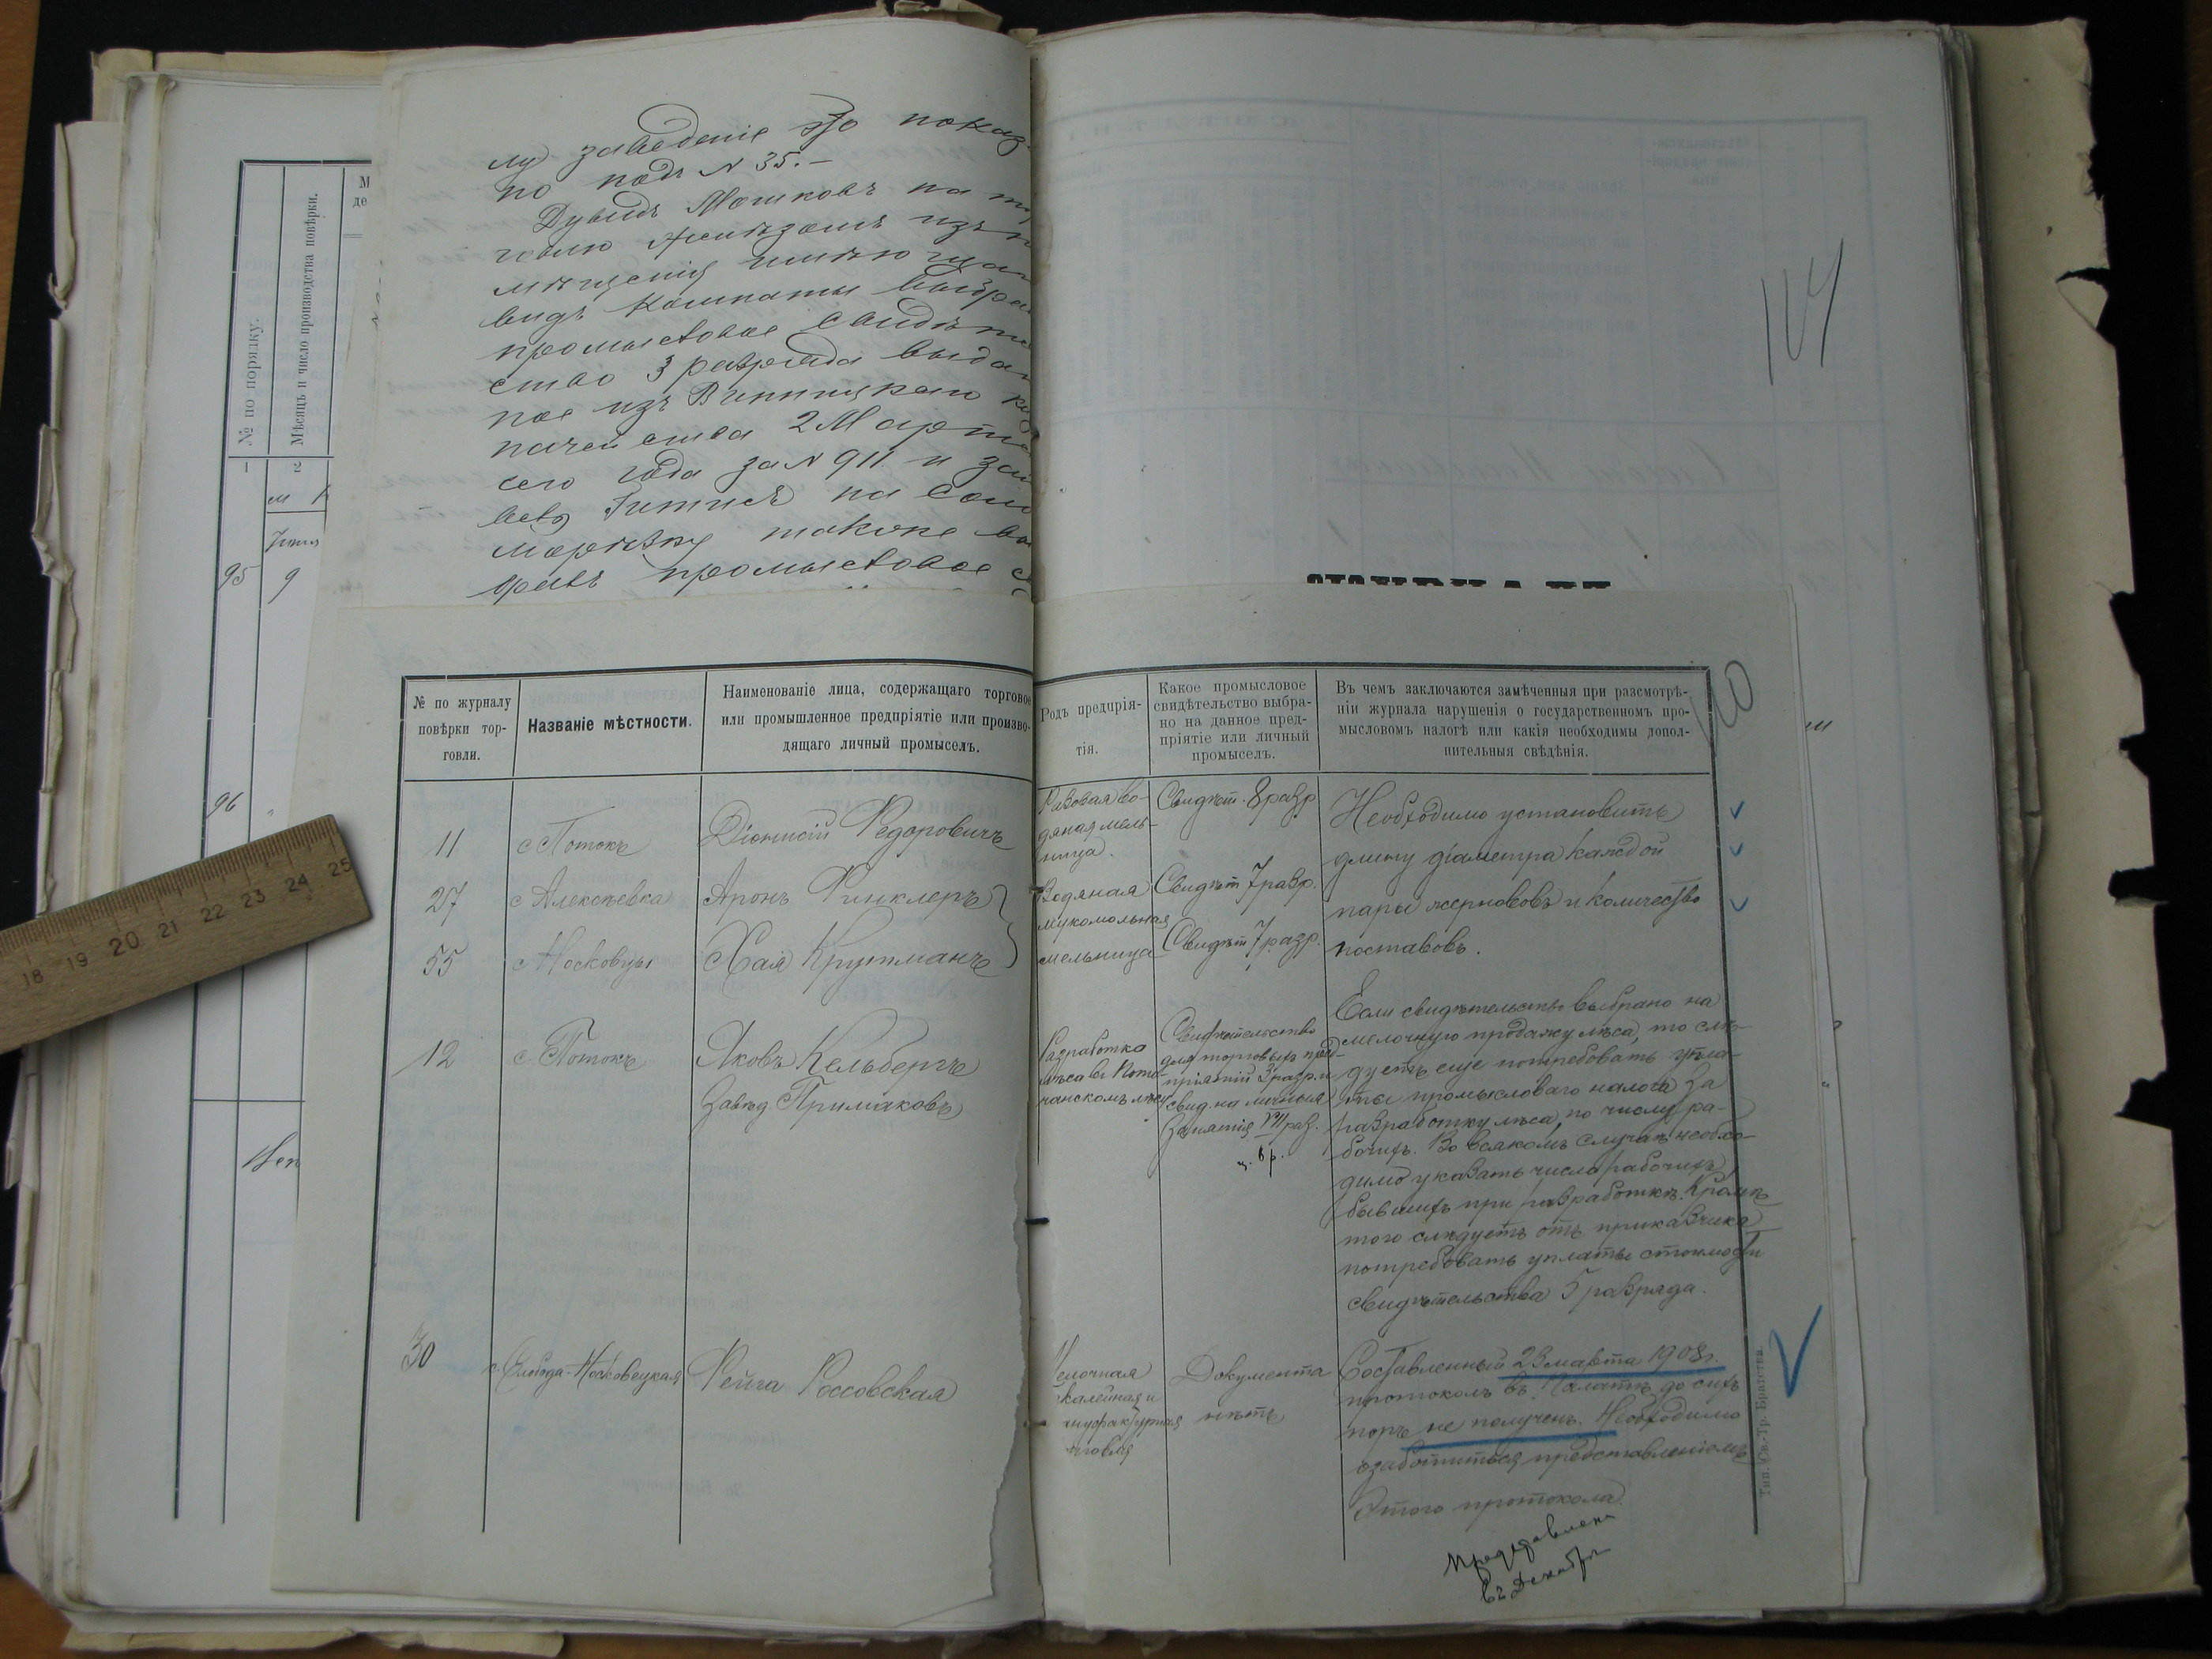 лу заведеніе это показ
но подъ N 35.—
Дувидъ Мошковъ на
говлю
видъ комнаты выбра
промысловое свидѣте
ство 3 разряда выдан
ное изъ Винницкаго ка
начейства 2 Марта
сего года за N 911 и
на
также вы
бравъ промысловое с
№ по порядку.
Мѣсяцъ и число производства повѣрки.
М
де
1
2
95
9
96
114
№ по журналу повѣрки торговли.
Названіе мѣстности.
Наименованіе лица, содержащаго торговое
или промышленное предпріятіе или произво-
дящаго личный промыселъ.
Родъ предпрія-
тія.
Какое промысловое
свидѣтельство выбра-
но на данное пред-
пріятіе или личный
промыселъ.
Въ чемъ заключаются замѣченныя при разсмотрѣ-
ніи журнала нарушенія о государственномъ про-
мысловомъ налогѣ или какія необходимы допол-
нительныя свѣдѣнія.
11
с Потокъ
Діонисій Федоровичъ
Разовая во-
дяная мель-
ница.
Свидѣт. 8 разр
Необходимо установить
длину діаметра каждой
27
с Алексѣевка
Аронъ Финклеръ
Водяная
мукомольная
мельница
Свидѣт 7 разр.
пары жерновов и количество
55
с Московцы
Хая Крупманъ
Свидѣт 7 разр.
поставовъ.
12
с. Потокъ
Яковъ Кельбергъ
Завѣд. Примаковъ
Разработка
лѣса въ Пото-
чанскомъ лѣсу
Свидѣтельство
для торговыхъ пред-
пріятій 3 разр. и
свид. на личныя
занятія VII раз.
ц. 6 р.
Если свидѣтельство выбрано на
мелочную продажу лѣса, то слѣ-
дуетъ еще потребовать упла-
ты промысловаго налога за
разработку лѣса, по числу ра-
бочихъ. Во всякомъ случаѣ необхо-
димо указать число рабочихъ,
бывшихъ при разработкѣ. Кромѣ
того слѣдуетъ отъ приказчика
потребовать уплаты стоимости
свидѣтельства 5 разряда.
30
с. Слобода-Московецкая
Фейга Россовская
елочная
калейная и
нуфактурная
говля
Документа
нѣтъ
Составленный 23 марта 1908 г.
протоколъ въ Палатѣ до сихъ
поръ не полученъ. Необходимо
озаботиться представленіемъ
этого протокола.
Представленъ
въ Декабрѣ
Тип. Св.-Тр. Братства.